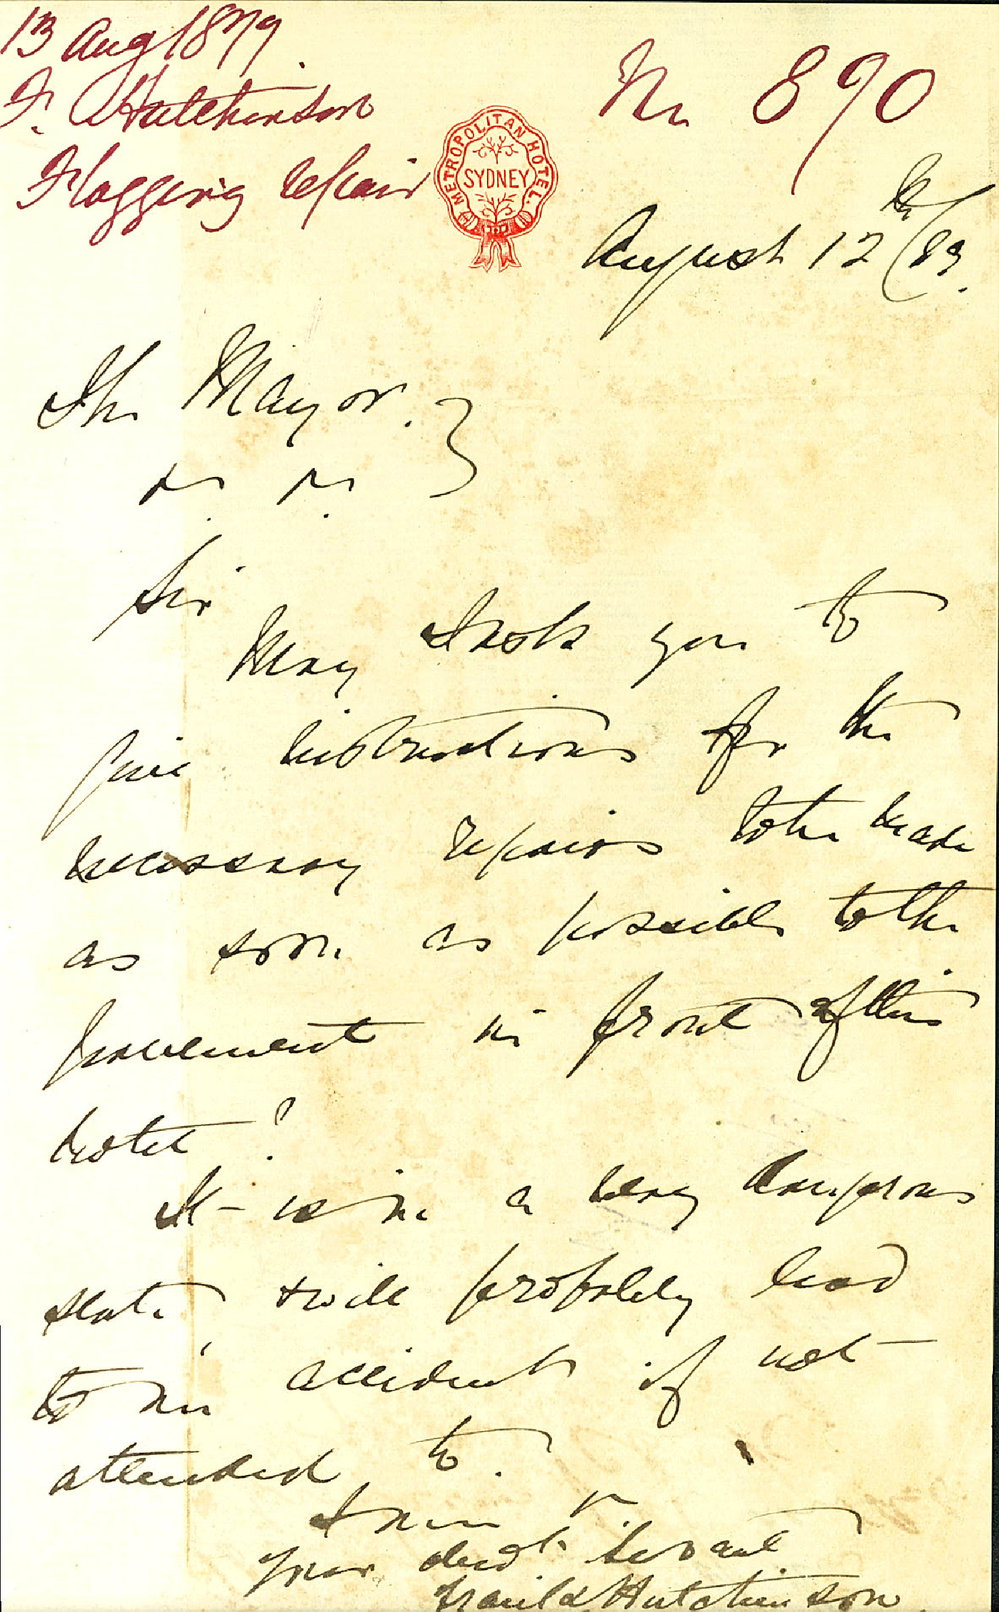 13 Aug 1879
F. Hutchinson
Flagging repair
No 890
METROPOLITAN HOTEL.
SYDNEY
August 12th /89.
The Mayor.
Sir
May I ask you to
give instructions for the
necessary repairs to be made
as soon as possible to the
pavement in front of this
hotel?
It is in a very dangerous
state, & will probably lead
to an accident if not
attended to.
I am &c
Your obedt. Servant
Hutchinson